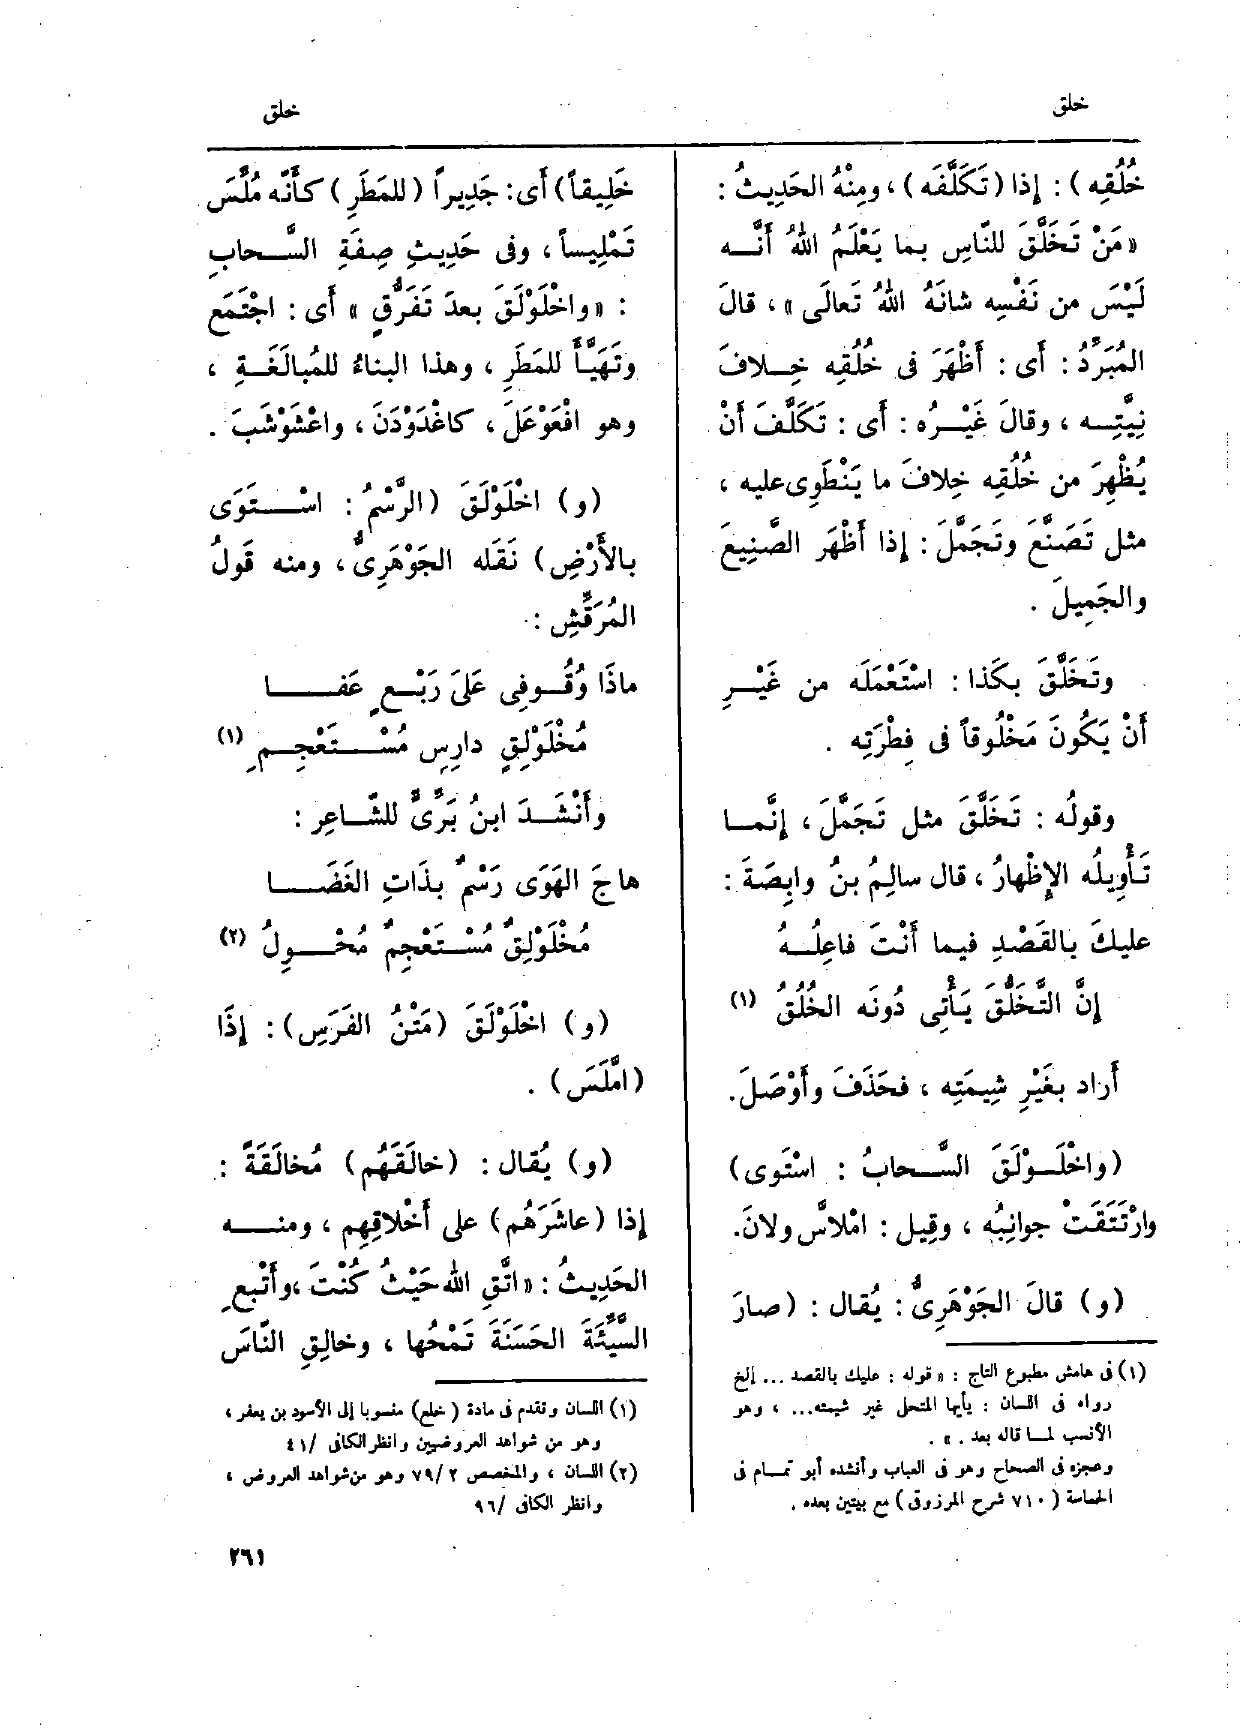 خلق
خلق
خُلُقِه) : إذا (تَكَلَّفَه) ، ومِنْهُ الحَدِيثُ :
«مَنْ تَخَلَّقَ للنّاسِ بما يَعْلَمُ اللهُ أَنَّه
لَيْسَ من نَفْسِه شانَهُ اللهُ تَعالَى» ، قالَ
المُبَرِّدُ : أَى : أَظْهَرَ فى خُلُقِه خِلافَ
نِيَّتِه ، وقالَ غَيْرُه : أَى : تَكَلَّفَ أَنْ
يُظْهِرَ من خُلُقِه خِلافَ ما يَنْطَوِى عليه ،
مثل تَصَنَّعَ وتَجَمَّلَ : إذا أَظْهَر الصَّنِيعَ
والجَمِيلَ .
وتَخَلَّقَ بكَذا : اسْتَعْمَلَه من غَيْرِ
أَنْ يَكُونَ مَخْلُوقاً فى فِطْرَتِه .
وقولُه : تَخَلَّقَ مثل تَجَمَّلَ ، إنَّما
تَأْوِيلُه الإِظْهارُ ، قال سالِمُ بنُ وابِصَةَ :
عليكَ بالقَصْدِ فيما أَنْتَ فاعِلُهُ
إنَّ التَّخَلُّقَ يَأْتِى دُونَه الخُلُقُ (١)
أَراد بغَيْرِ شِيمَتِه ، فحَذَفَ وأَوْصَلَ.
(واخْلَوْلَقَ السَّحابُ : اسْتَوى)
وارْتَتَقَتْ جوانِبُه ، وقِيل : امْلاسَّ ولانَ.
(و) قالَ الجَوْهَرِىُّ : يُقال : (صارَ
(١) فى هامش مطبوع التاج : «قوله : عليك بالقصد ... إلخ
رواه فى اللسان : يأيها المتحل غير شيمته... ، وهو
الأنسب لما قاله بعد . » .
وعجزه فى الصحاح وهو فى العباب وأنشده أبو تمام فى
الحماسة (٧١٠ شرح المرزوقى) مع بيتين بعده .
خَلِيقاً) أَى: جَدِيراً (للمَطَرِ) كأَنَّه مُلِّسَ
تَمْلِيساً ، وفى حَدِيثِ صِفَةِ السَّحابِ
: «واخْلَوْلَقَ بعدَ تَفَرُّقٍ» أَى : اجْتَمَع
وتَهَيَّأَ للمَطَرِ ، وهذا البِناءُ للمُبالَغَةِ ،
وهو افْعَوْعَلَ ، كاغْدَوْدَنَ ، واعْشَوْشَبَ .
(و) اخْلَوْلَقَ (الرَّسْمُ : اسْتَوَى
بالأَرْضِ) نَقَله الجَوْهَرِىُّ ، ومنه قَولُ
المُرَقِّشِ :
ماذَا وُقُوفِى عَلَى رَبْعٍ عَفا
مُخْلَوْلِقٍ دارِسٍ مُسْتَعْجِمِ (١)
وأَنْشَدَ ابنُ بَرِّىٍّ للشّاعِرِ :
هاجَ الهَوَى رَسْمٌ بذَاتِ الغَضَا
مُخْلَوْلِقٌ مُسْتَعْجِمٌ مُحْوِلُ (٢)
(و) اخْلَوْلَقَ (مَتْنُ الفَرَسِ) : إذَا
(امَّلَسَ) .
(و) يُقال : (خالَقَهُم) مُخالَقَةً :
إذا (عاشَرَهُم) على أَخْلاقِهِم ، ومنه
الحَدِيثُ : «اتَّقِ الله حَيْثُ كُنْتَ ، وأَتْبِعِ
السَّيِّئَةَ الحَسَنَةَ تَمْحُها ، وخالِقِ النّاسَ
(١) اللسان وتقدم فى مادة (خلع) منسوبا إلى الأسود بن يعفر ،
وهو من شواهد العروضيين وانظر الكافى /٤١
(٢) اللسان ، والمخصص ٧٩/٢ وهو من شواهد العروض ،
وانظر الكافى /٩٦
٢٦١